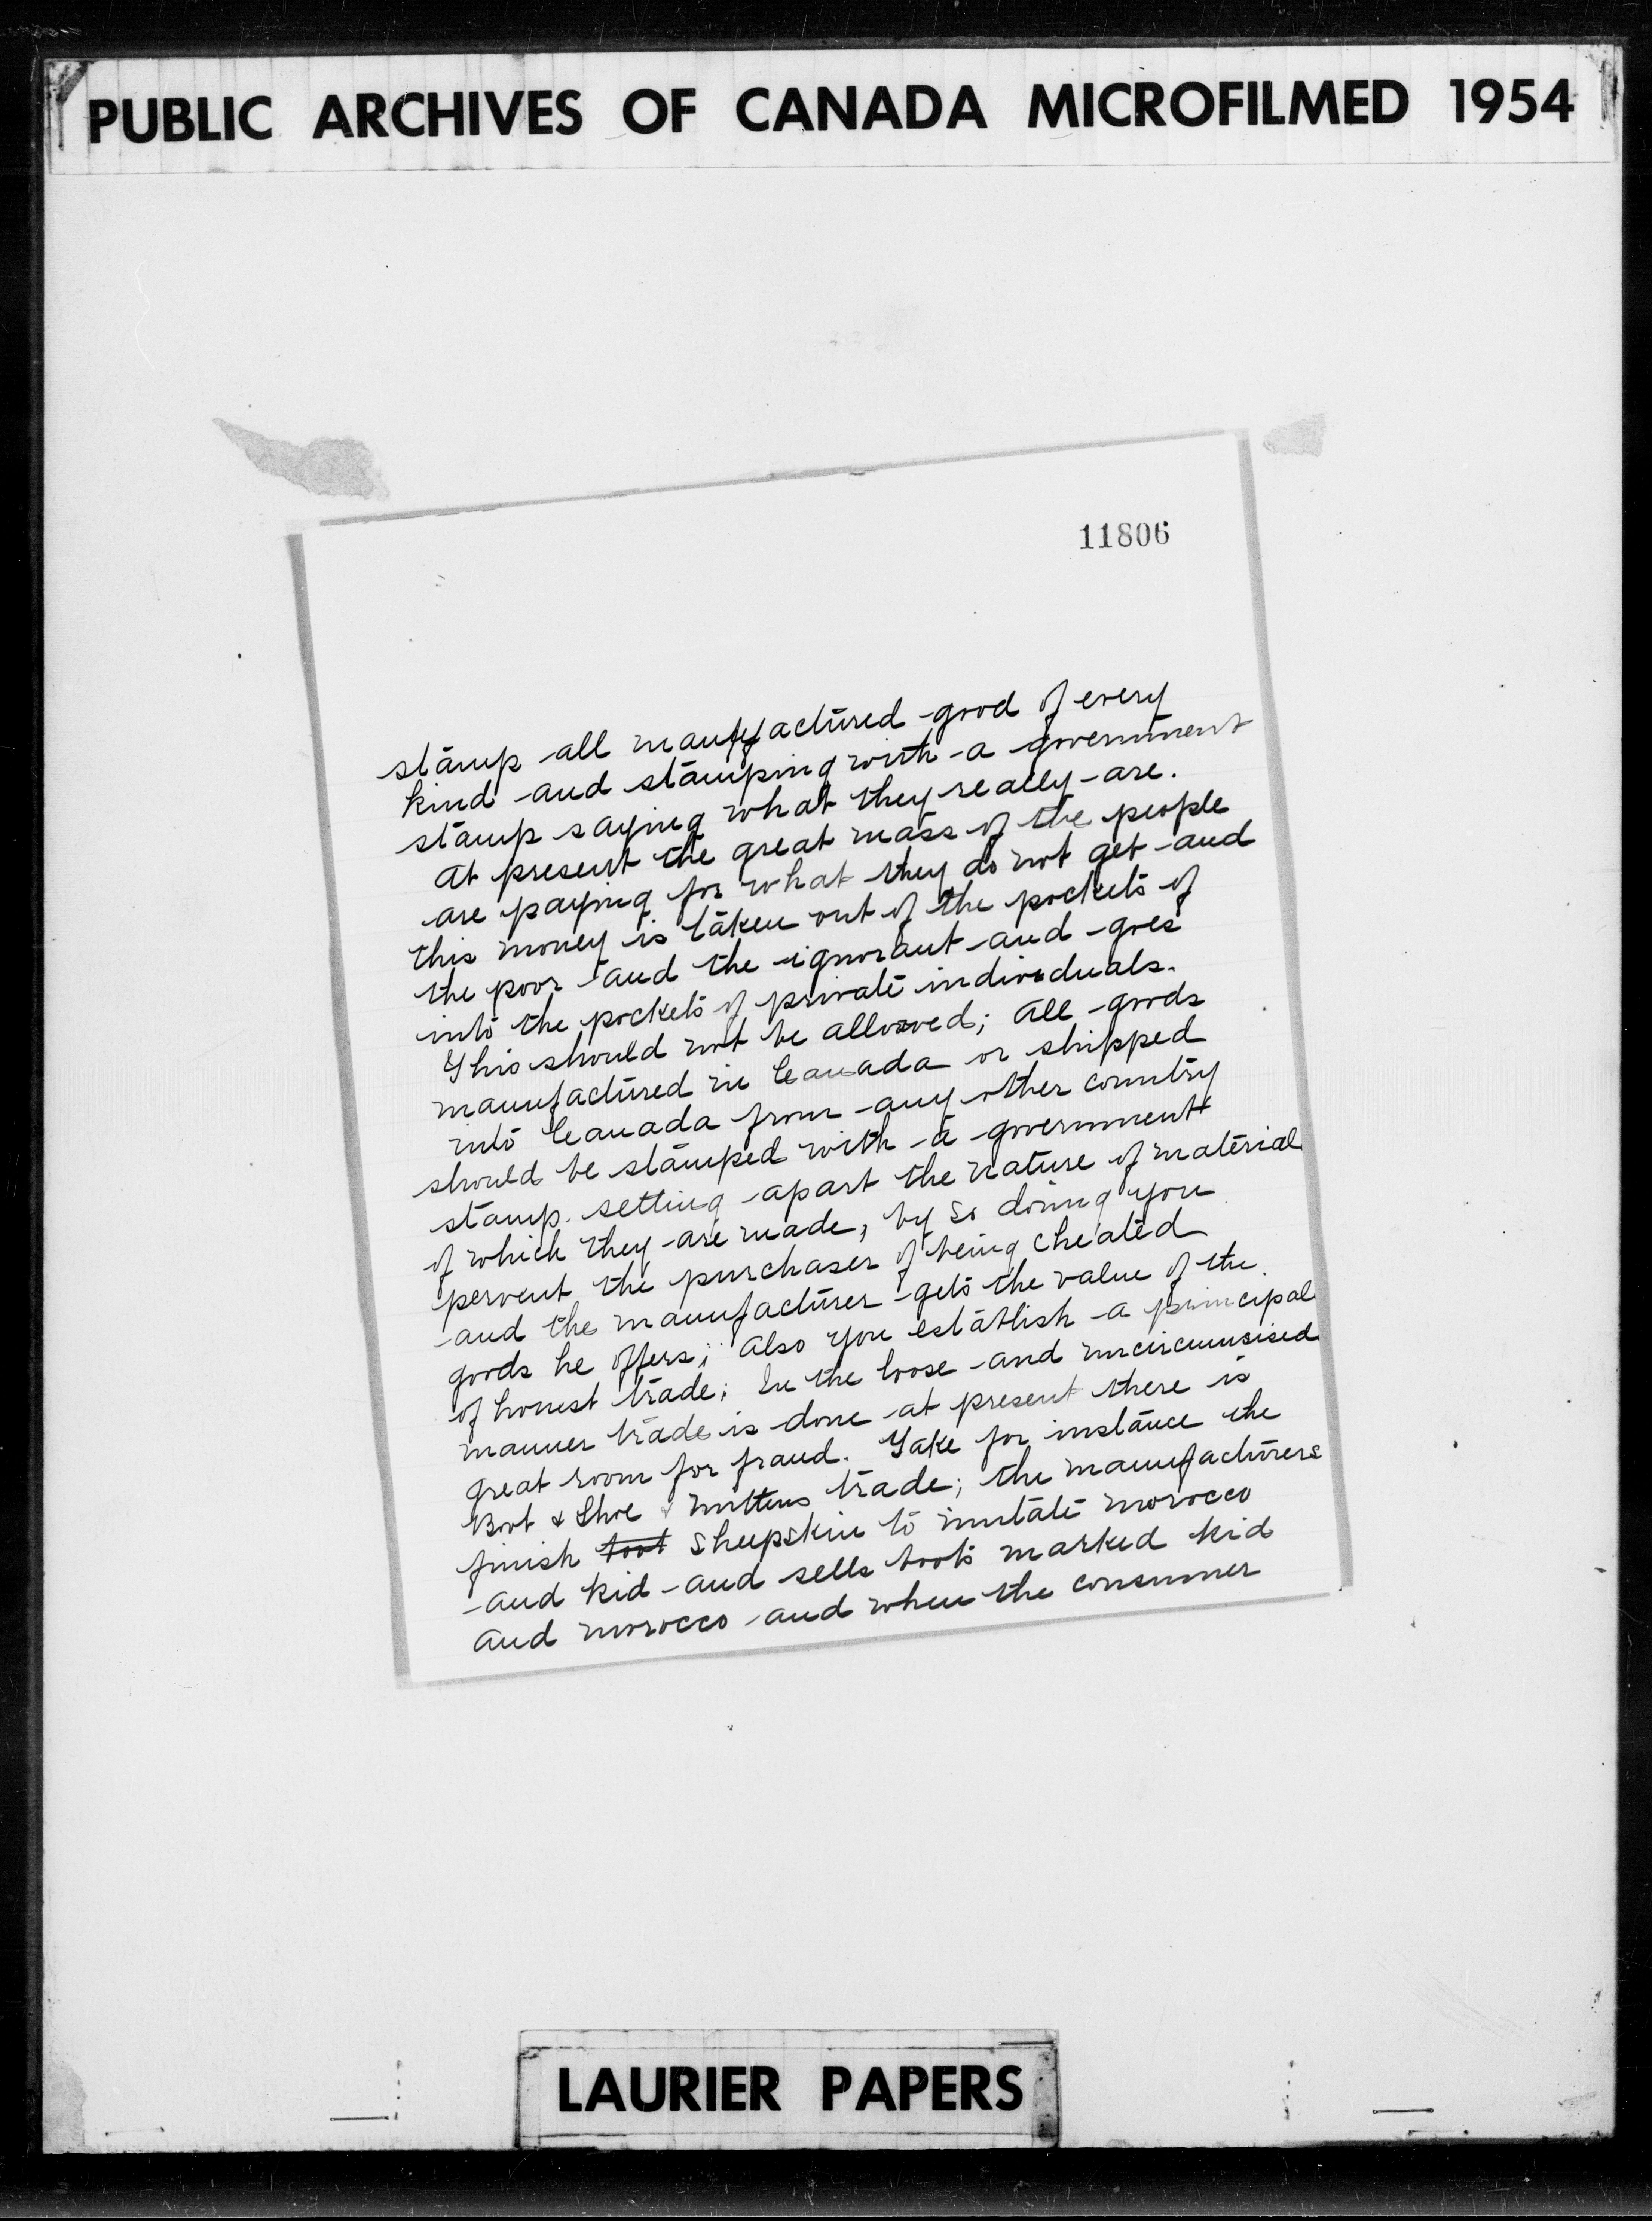 PUBLIC ARCHIVES OF CANADA MICROFILMED 1954
11806
stamp all manufactured good of every
kind and stamping with a government
stamp saying what they really are.
At present the great mass of the people
are paying for what they do not get and
this money is taken out of the pockets of
the poor and the ignorant and goes
into the pockets of private individuals.
This should not be allowed; All goods
manufactured in Canada or shipped
into Canada from any other country
should be stamped with a government
stamp. setting apart the nature of material
of which they are made, by so doing you
pervent the purchaser of being cheated
and the manufacturer gets the value of the
goods he offers; Also you establish a principal
of honest trade; In the loose and uncircumsised
manner trade is done at present there is
great room for fraud. Take for instance the
Boot & Shoe & mittens trade; the manufacturers
finish boot sheepskin to imitate morocco
and kid and sells boots marked kid
and morocco and when the consumer
LAURIER PAPERS